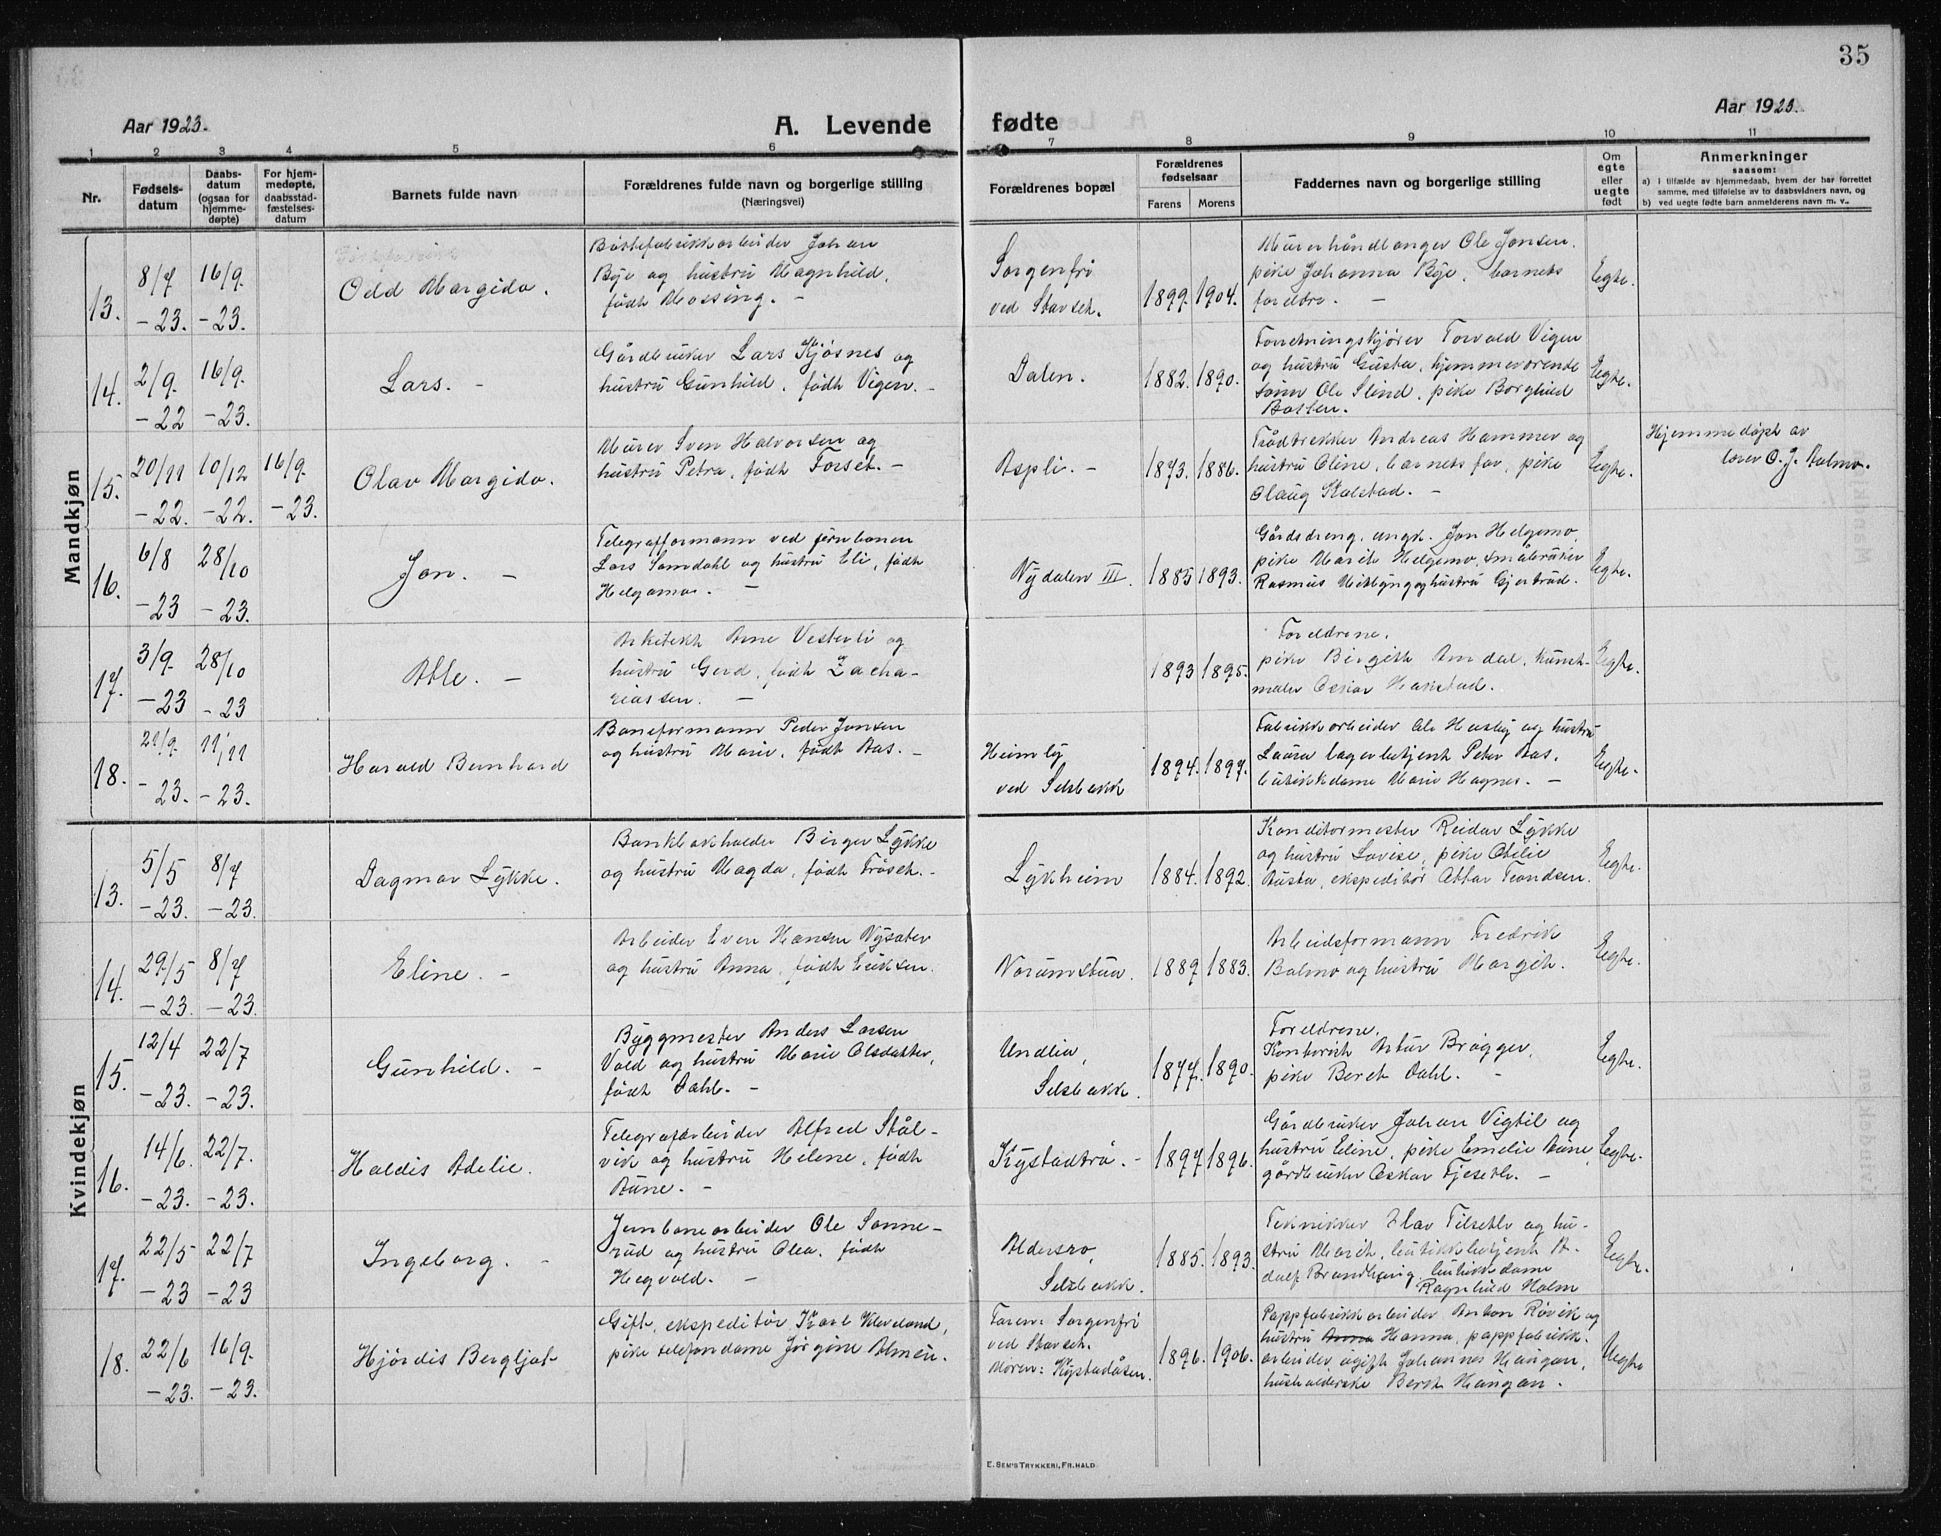 35
Aar 1923.
A. Levende fødte
Aar 1923.
1 2 3 4 5 6 7 8 9 10 11
Nr.
Fødsels-
datum
Daabs-
datum
(ogsaa for
hjemme-
døpte)
For hjem-
medøpte,
daabsstad-
fæstelses-
datum
Barnets fulde navn
Forældrenes fulde navn og borgerlige stilling
(Næringsvei)
Forældrenes bopæl
Forældrenes
fødselsaar
Farens Morens
Faddernes navn og borgerlige stilling
Om
egte
eller
uegte
født
Anmerkninger
saasom:
a) i tilfælde av hjemmedaab, hvem der har forrettet
samme, med tilføielse av to daabsvidners navn, og
b) ved uegte fødte barn anmelderens navn m. v.
Mandkjøn
13.
8/7
-23.
16/9.
-23.
Odd Margido.
Børstefabrikkarbeider Johan
Bye og hustru Magnhild,
født Mossing. -
Sorgenfri
ved Stavset.
1899. 1904.
Murerhåndlanger Ole Jonsen.
pike Johanna Bye, barnets
foreldre. -
Egte.
14.
2/9.
-22
16/9.
-23.
Lars. -
Gårdbruker Lars Kjøsnes og
hustru Gunhild, født Vigen. -
Dalen.
1882. 1890.
Forretningskjører Torvald Vigen
og hustru Gusta, hjemmeværende
sønn Ole Slind, pike Borghild
Egte.
15.
20/11
-22.
10/12
-22.
16/9.
-23.
Olav Margido.
Murer Sven Halvorsen og
hustru Petra, født Forset. -
Aspli. -
1873. 1886.
Trådtrekker Andreas Hammer og
hustru Oline, barnets far, pike
Olaug Stalstad. -
Egte.
Hjemmedøpt av
lærer O. J. Aalmo.
16.
6/8
-23
28/10
-23.
Jon. -
Telegrafformann ved jernbanen
Lars Samdahl og hustru Eli, født
Helgemo. -
Nydalen III.
1885 1893.
Gårdsdreng, ungk. Jon Helgemo,
pike Marit Helgemo, småbruker
Rasmus Uitbyng og hustru Gjertrud.
Egte.
17.
3/9.
-23
28/10
-23
Atle. -
Arkitekt Arne Vesterli og
hustru Gerd, født Zacha-
riassen. -
1893 1895.
Foreldrene.
pike Birgith Amdal, kunst-
maler Oskar Hakstad.
Egte.
18.
21/9.
-23.
11/11
-23.
Harald Bernhard
Baneformann Peder Jonsen
og hustru Marie, født Aas. -
Heimly
ved Selsbakk
1894. 1897.
Fabrikkarbeider Ole Hasby og hustru
Laura lagerbetjent Peter Aas.
butikkdame Marie Hagnes. -
Egte.
Kvindekjøn
13.
5/5
-23.
8/7
-23.
Dagmar Lykke.
Bankbokholder Birger Lykke
og hustru Magda, født Trøseth. -
Lykheim
1884. 1892.
Konditormester Reidar Lykke
og hustru Lovise, pike Otilie
Austa, ekspeditør Ottar Trondsen.
Egte.
14.
29/5
-23.
8/7
-23.
Eline. -
Arbeider Even Hansen Nysæter
og hustru Anna, født Eriksen.
Norumstua.
1889 1883.
Arbeidsformann Fredrik
Balmo og hustru Margit.
Egte.
15.
12/4
-23.
22/7
-23.
Gunhild. -
Byggmester Anders Larsen
Vold og hustru Marie Olsdatter,
født Dahl. -
Undlia,
Selsbakk.
1877. 1890.
Foreldrene.
Kontorist Artur Brøgger,
pike Beret Dahl. -
Egte.
16.
14/6.
-23.
22/7.
-23.
Haldis Adelie.
Telegrafarbeider Alfred Stål-
vik og hustru Helene, født
Aune. -
Kystadtrø. -
1897 1896.
Gårdbruker Johan Vigtil og
hustru Eline, pike Emelie Aune,
gårdbruker Oskar Tjesetl. -
Egte.
17.
22/5
-23
22/7
-23
Ingeborg. -
Jernbanearbeider Ole Sonne-
rud og hustru Olea, født
Hegvold. -
Aldersro,
Selsbakk.
1885. 1893.
Tekniker Olav Tilsetl og hu-
stru Marit, butikkbetjent A-
dolf Brandhaug, butikkdame
Ragnhild Holm
Egte.
18.
22/6
-23.
16/9.
-23.
Hjørdis Bergljot
Gift, ekspeditør Karl Kleveland,
pike telefondame Jørgine Almen.
Faren: Sorgenfri
ved Stavset.
Moren: Kystadåsen.
1896. 1906.
Pappfabrikkarbeider Anton Røvik og
hustru Anna Hanna, pappfabrikk-
arbeider ugift Johannes Haugan,
husholderske Beret Haugan.
Uegte
E. SEM'S TRYKKERI, FR.HALD